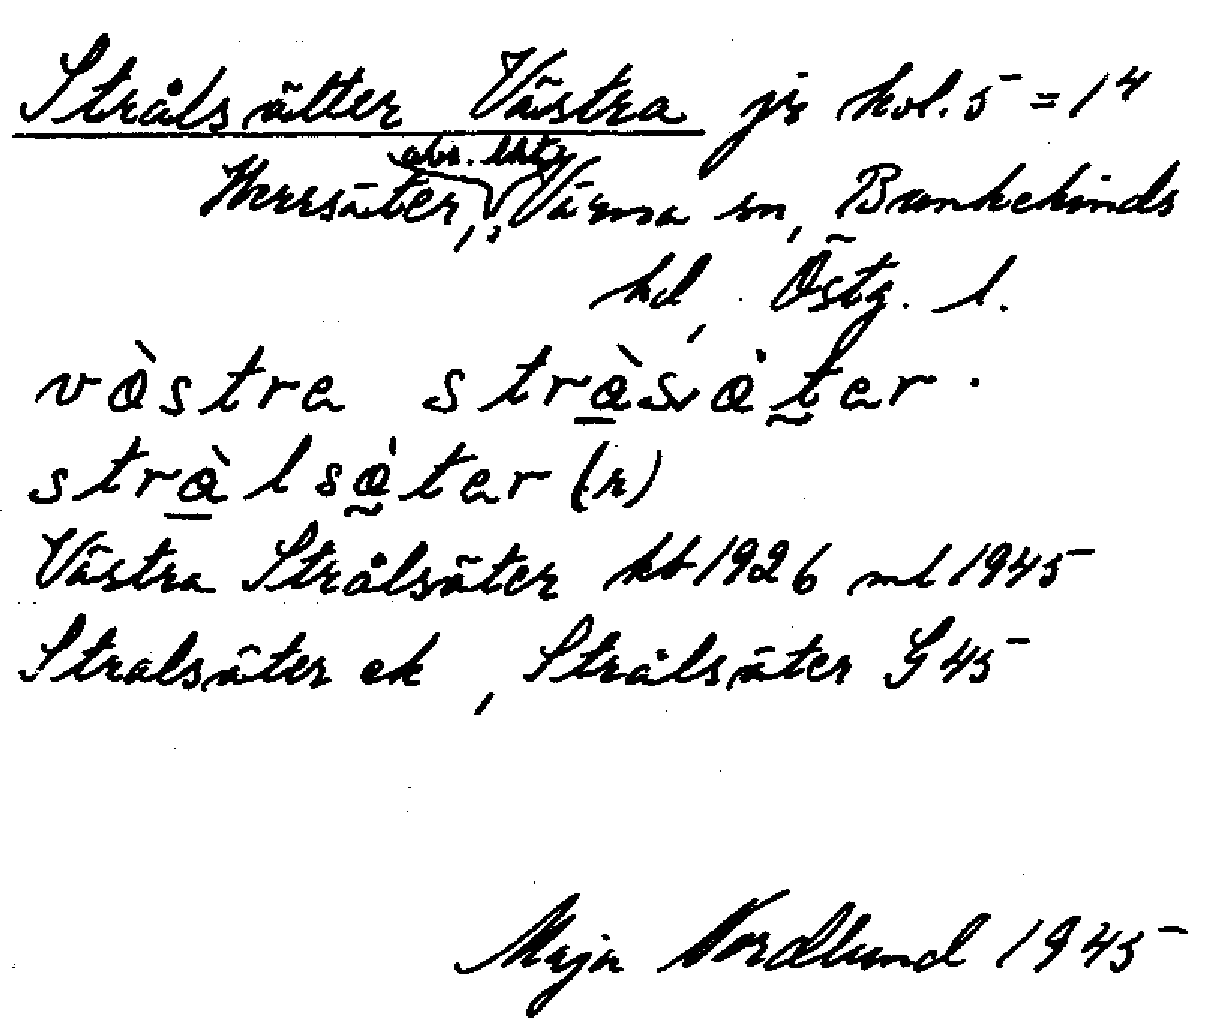 Strålsätter Västra jr kol. 5 = 1⁴
Herrsäter, abs. lht, Värna sn, Bankekinds
hd, Östg. l.
vàstre stràsàter.
stràlsàter (r)
Västra Strålsäter kb 1926 ml 1945
Stralsäter ek, Strålsäter G 45
Maja Nordlund 1945